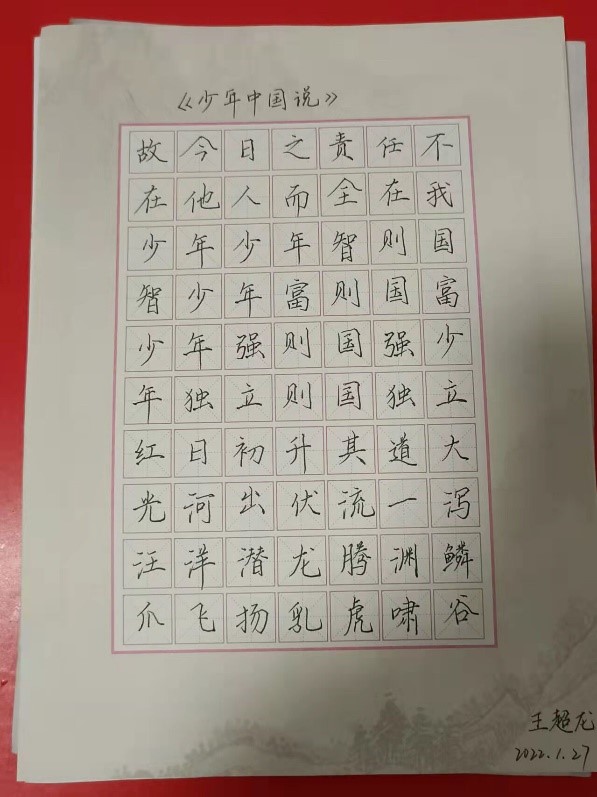 《少年中国说》
故今日之责任不
在他人而全在我
少年少年智则国
智少年富则国富
少年强则国强少
年独立则国独立
红日初升其道大
光河出伏流一泻
汪洋潜龙腾渊鳞
爪飞扬乳虎啸谷
王超龙
2022.1.27